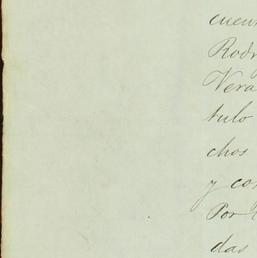 cuen
Rodr
Vera
tulo
chos
y con
Por
das